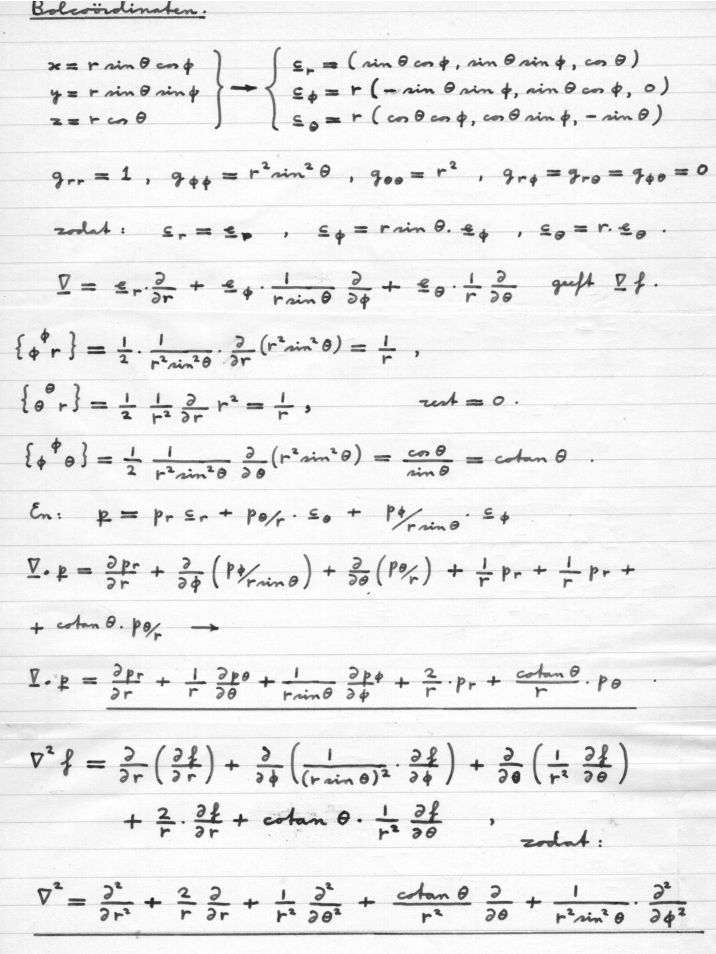 Bolcoördinaten.
x = r sin θ cos φ } → { c̲_r = (sin θ cos φ, sin θ sin φ, cos θ)
y = r sin θ sin φ } → { c̲_φ = r (- sin θ sin φ, sin θ cos φ, 0)
z = r cos θ } → { c̲_θ = r (cos θ cos φ, cos θ sin φ, - sin θ)
g_rr = 1 , g_φφ = r² sin² θ , g_θθ = r² , g_rφ = g_rθ = g_φθ = 0
zodat : c̲_r = e̲_r , c̲_φ = r sin θ. e̲_φ , c̲_θ = r. e̲_θ .
∇̲ = e̲_r . ∂/∂r + e̲_φ . 1/(r sin θ) ∂/∂φ + e̲_θ . 1/r ∂/∂θ geeft ∇̲ f .
{φ^φ r} = 1/2 . 1/(r² sin² θ) . ∂/∂r (r² sin² θ) = 1/r ,
{θ^θ r} = 1/2 1/r² ∂/∂r r² = 1/r , rest = 0 .
{φ^φ θ} = 1/2 1/(r² sin² θ) ∂/∂θ (r² sin² θ) = cos θ/sin θ = cotan θ .
En : p̲ = p_r c̲_r + p_θ/r . c̲_θ + p_φ/(r sin θ) . c̲_φ
∇̲ . p̲ = ∂p_r/∂r + ∂/∂φ (p_φ/(r sin θ)) + ∂/∂θ (p_θ/r) + 1/r p_r + 1/r p_r +
+ cotan θ . p_θ/r →
∇̲ . p̲ = ∂p_r/∂r + 1/r ∂p_θ/∂θ + 1/(r sin θ) ∂p_φ/∂φ + 2/r . p_r + cotan θ/r . p_θ .
∇² f = ∂/∂r (∂f/∂r) + ∂/∂φ (1/(r sin θ)² . ∂f/∂φ) + ∂/∂θ (1/r² ∂f/∂θ)
+ 2/r . ∂f/∂r + cotan θ . 1/r² ∂f/∂θ , zodat :
∇² = ∂²/∂r² + 2/r ∂/∂r + 1/r² ∂²/∂θ² + cotan θ/r² ∂/∂θ + 1/(r² sin² θ) . ∂²/∂φ²